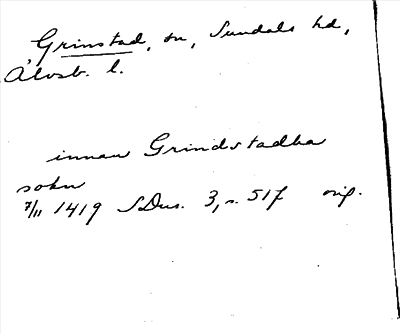 Grinstad, sn, Sundals hd,
Älvsb. l.
innan Grindstadha
sokn
7/11 1419 SDns. 3, s. 517 orig.